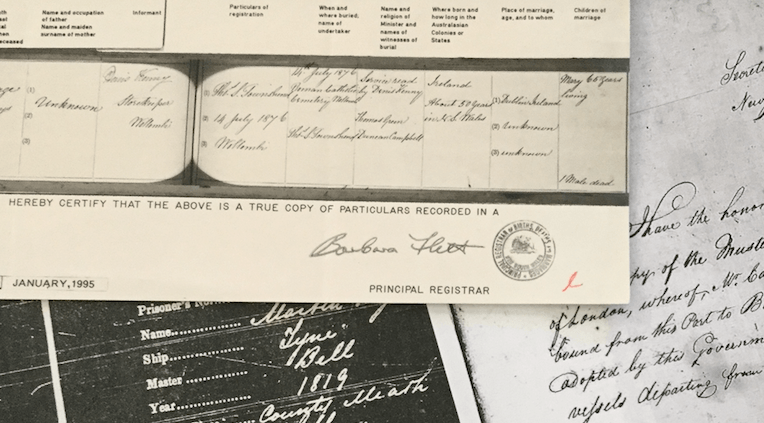 Name and occupation
of father
Name and maiden
surname of mother
Informant
Particulars of
registration
When and
where buried;
name of
undertaker
Name and
religion of
Minister and
names of
witnesses of
burial
Where born and
how long in the
Australasian
Colonies or
States
Place of marriage,
age, and to whom
Children of
marriage
(1)
Unknown
(2)
(3)
Denis Kenny
Storekeeper
Wollombi
(1) Thos. S. Townshend
(2) 14 July 1876
(3) Wollombi
14th July 1876
Roman Catholic
Cemetery
Thos. S. Townshend
Service read
by Denis Kenny
Thomas Green
Duncan Campbell
Ireland
About 50 years
in N.S. Wales
(1) Dublin Ireland
(2) unknown
(3) unknown
Mary 65 years
living
1 Male dead
HEREBY CERTIFY THAT THE ABOVE IS A TRUE COPY OF PARTICULARS RECORDED IN A
Barbara Flett
PRINCIPAL REGISTRAR
JANUARY, 1995
Prisoner's
Name
Martin
Ship
Tyne
Master
Bell
Year
1819
County Meath
I have the honor
copy of the
of London, whereof, Mr.
bound from this Port to
adopted by the
vessels departing from